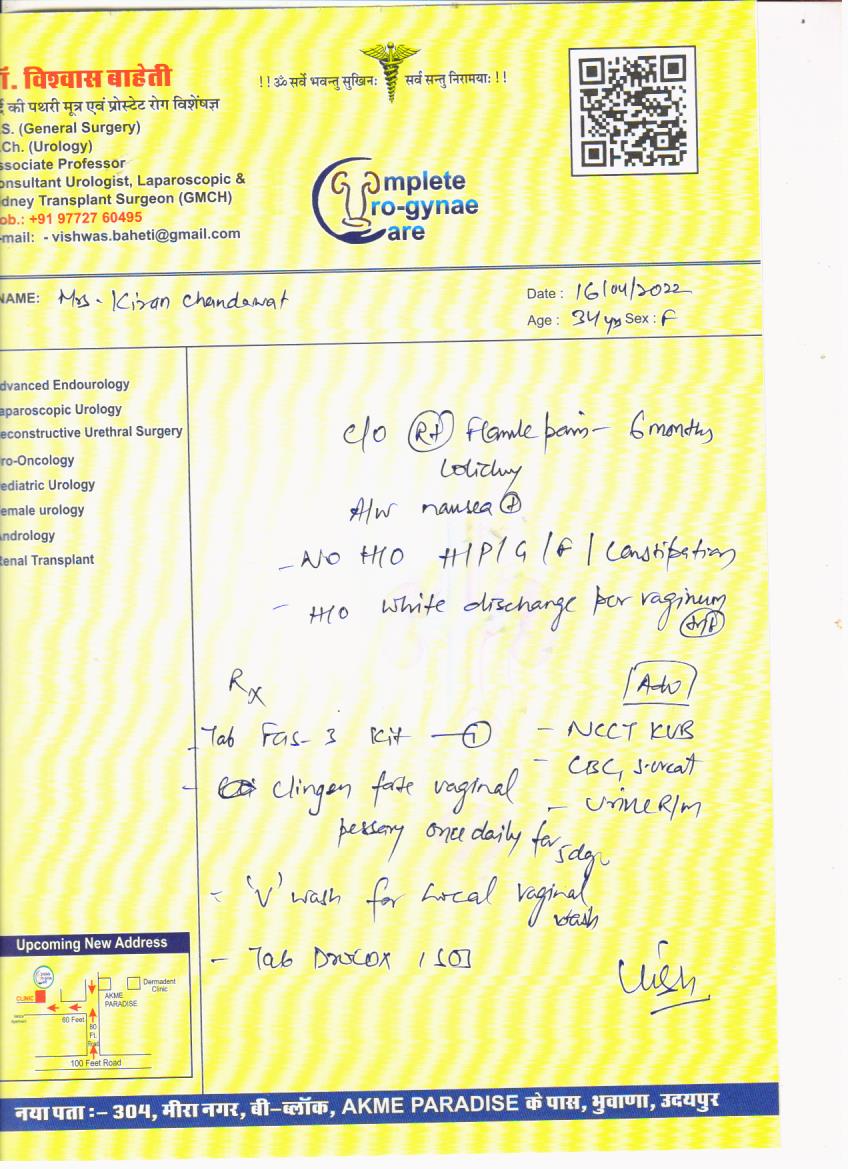 ॉ. विश्वास बाहेती
की पथरी मूत्र एवं प्रोस्टेट रोग विशेषज्ञ
.S. (General Surgery)
.Ch. (Urology)
ssociate Professor
onsultant Urologist, Laparoscopic &
dney Transplant Surgeon (GMCH)
ob.: +91 97727 60495
-mail: - vishwas.baheti@gmail.com
!! ॐ सर्वे भवन्तु सुखिनः सर्व सन्तु निरामयाः !!
omplete
ro-gynae
are
NAME: Mrs. Kiran Chandawat
Date : 16/04/2022
Age : 34 yrs Sex : F
dvanced Endourology
aparoscopic Urology
econstructive Urethral Surgery
ro-Oncology
ediatric Urology
emale urology
ndrology
enal Transplant
c/o Rt Flank pain - 6 months
A/w nausea +
- No H/O H/P/G/F/Constipation
- H/O white discharge per vaginum
Rx
Adv
- Tab Fas-3 Kit - 1
- NCCT KUB
- CBC, S.creat
- Urine R/m
- clingen forte vaginal
pessary once daily for 5 days
- 'V' wash for Local vaginal
wash
- Tab
Upcoming New Address
CLINIC
AKME
PARADISE
Dermadent
Clinic
60 Feet
80
Ft.
Road
100 Feet Road
नया पता :– 304, मीरा नगर, बी–ब्लॉक, AKME PARADISE के पास, भुवाणा, उदयपुर